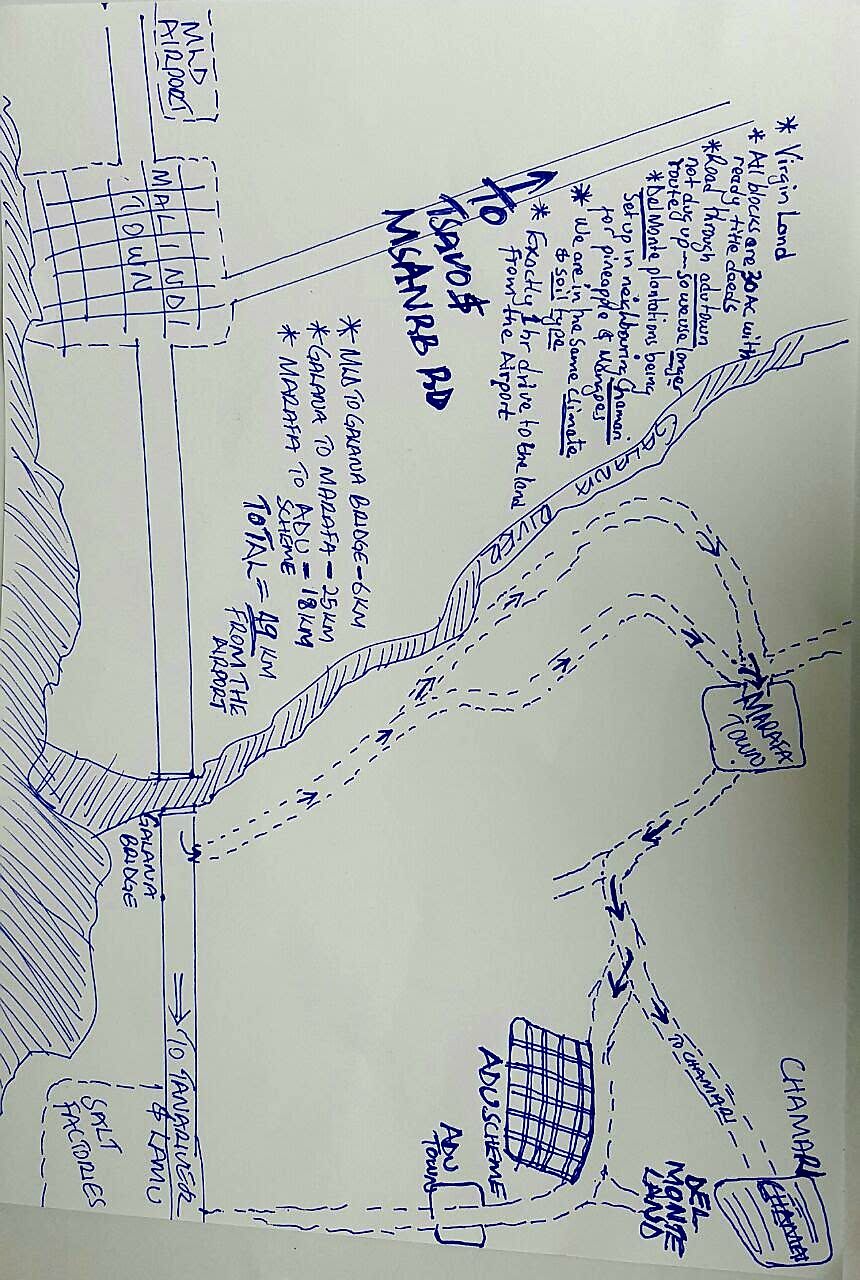 * Virgin Land
* All blocks are 30AC with
ready title deeds
* Road through adu town
not dug up - so we use longer
route
* Del Monte plantations being
set up in neighbouring Chamari
for pineapple & Mangoes
* We are in the same climate
& soil type
* Exactly 1 hr drive to the land
from the Airport
TO
TSAVO &
MSANRB RD
MLD
AIRPORT
MALINDI
TOWN
* MLD TO GALANA BRIDGE - 6KM
* GALANA TO MARAFA - 25KM
* MARAFA TO ADU = 18KM
SCHEME
TOTAL = 49KM
FROM THE
AIRPORT
RIVER
MARAFA
TOWN
GALANA
BRIDGE
TO TANARIVER
& LAMU
SALT
FACTORIES
ADU SCHEME
ADU
TOWN
TO CHAMARI
CHAMARI
CHAMARI
DEL
MONTE
LAND